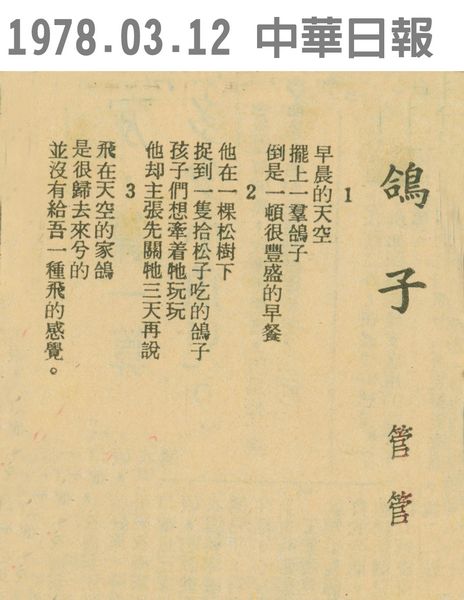 1978.03.12 中華日報
鴿子
管管
1
早晨的天空
擺上一羣鴿子
倒是一頓很豐盛的早餐
2
他在一棵松樹下
捉到一隻拾松子吃的鴿子
孩子們想牽着牠玩玩
他却主張先關牠三天再說
3
飛在天空的家鴿
是很歸去來兮的
並沒有給吾一種飛的感覺。